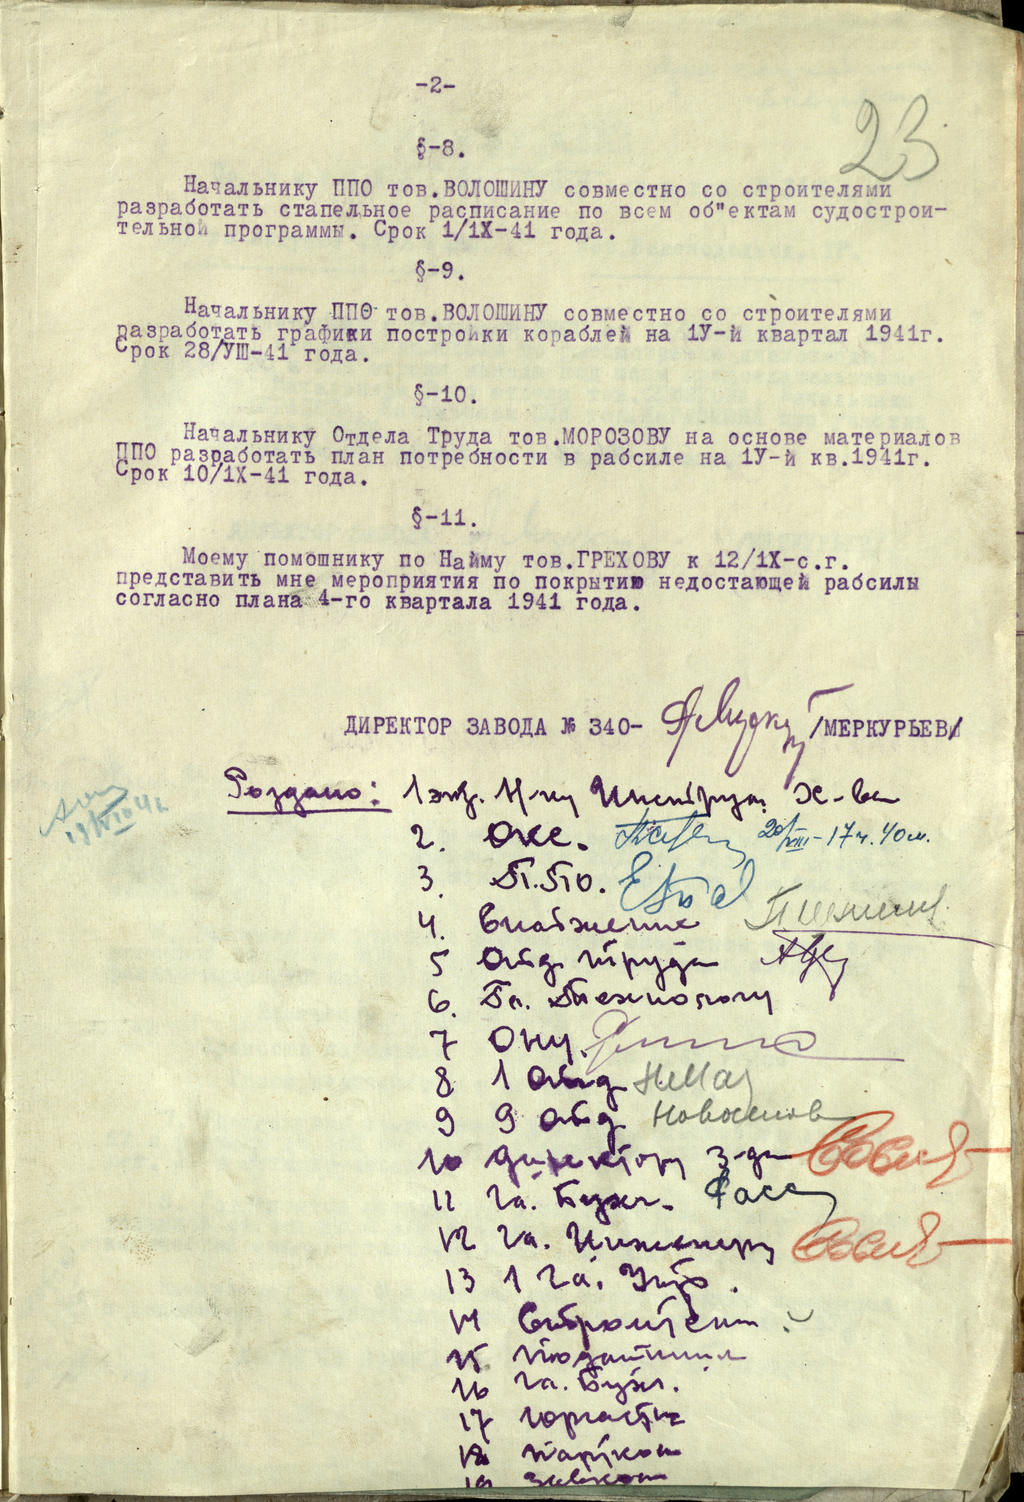 -2-
23
§-8.
Начальнику ППО тов.ВОЛОШИНУ совместно со строителями
разработать стапельное расписание по всем об"ектам судострои-
тельной программы. Срок 1/1Х-41 года.
§-9.
Начальнику ППО тов.ВОЛОШИНУ совместно со строителями
разработать графики постройки кораблей на 1У-й квартал 1941г.
Срок 28/УШ-41 года.
§-10.
Начальнику Отдела Труда тов.МОРОЗОВУ на основе материалов
ППО разработать план потребности в рабсиле на 1У-й кв.1941г.
Срок 10/1Х-41 года.
§-11.
Моему помошнику по Найму тов.ГРЕХОВУ к 12/1Х-с.г.
представить мне мероприятия по покрытию недостающей рабсилы
согласно плана 4-го квартала 1941 года.
ДИРЕКТОР ЗАВОДА № 340- /МЕРКУРЬЕВ/
Роздано: 1 экз. Н-ку Инструм. Х-ва
2. ОКС. 20/VIII-17ч.40м.
3. П.ПО.
4. Снабжение
5 Отд труда
6. Гл. Технологу
7 ОНУ.
8 1 Отд
9 9 Отд Новоселов
10 Директору З-да
11 Гл. Бухг.
12 Гл. Инженеру
13 1 Гл.
14
15
16 Гл. Бухг.
17
18 партком
19 завком